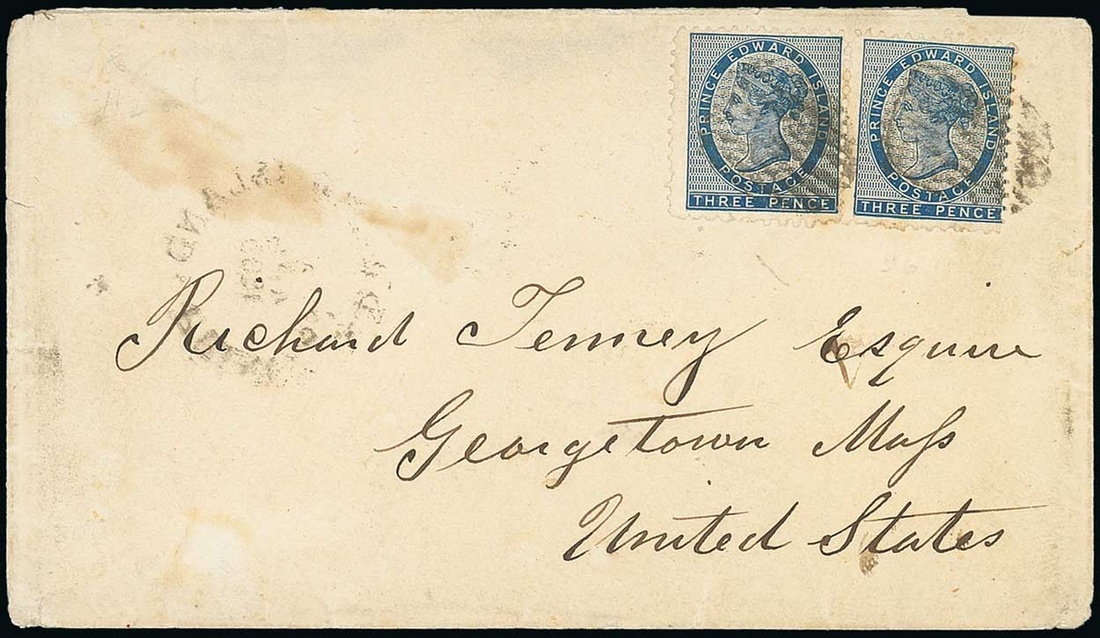 PRINCE EDWARD ISLAND
POSTAGE
THREE PENCE
PRINCE EDWARD ISLAND
POSTAGE
THREE PENCE
ISLAND
Richard Tenney Esquire
Georgetown Mass
United States